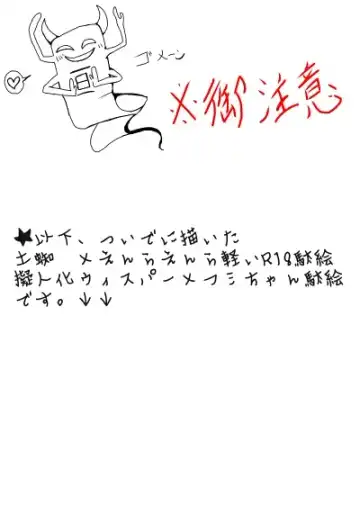 ゴメーン
※御注意
★以下、ついでに描いた
土蜘蛛×えんらえんら軽いR18駄絵
擬人化ウィスパー×フミちゃん駄絵
です。↓↓